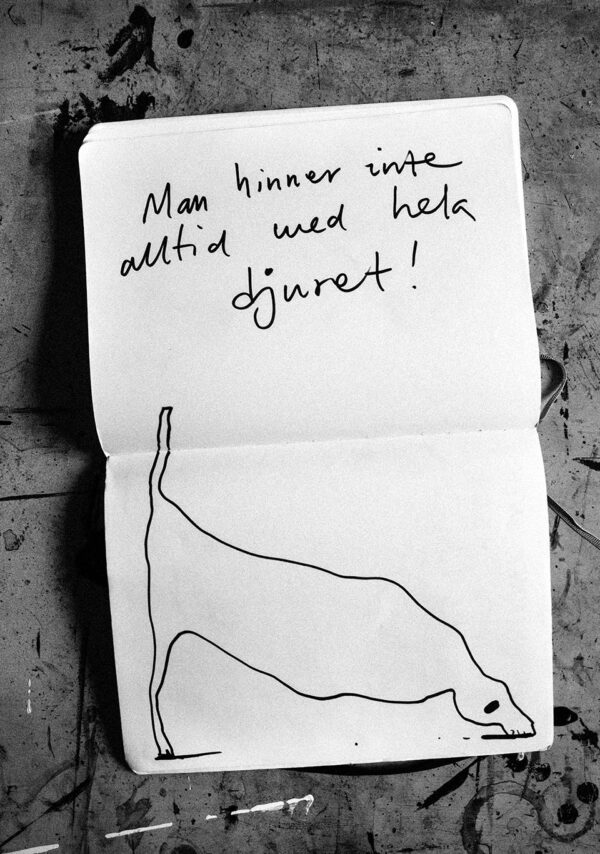 Man hinner inte
alltid med hela
djuret!